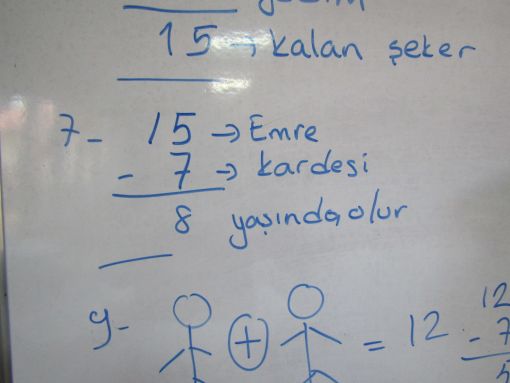 15 → kalan şeker
7- 15 → Emre
- 7 → kardesi
8 yaşında olur
9- + = 12
12
- 7
5